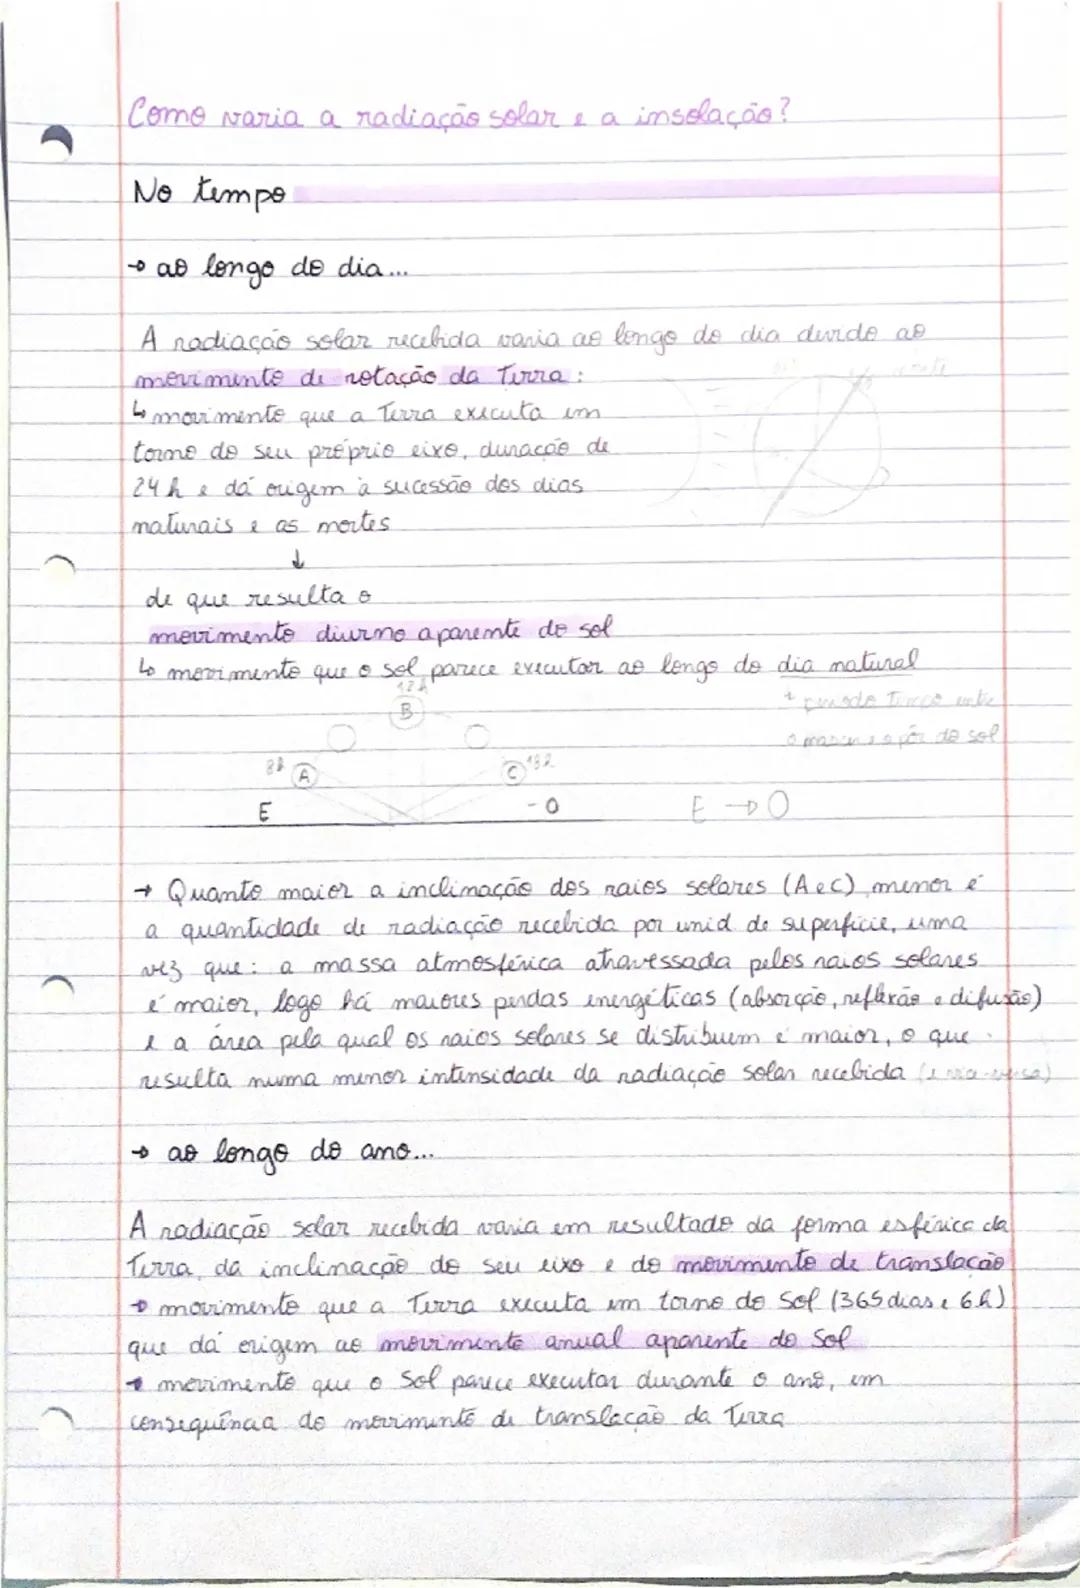 Como varia a radiação solar e a insolação?
No tempo
→ ao longo do dia...
A radiação solar recebida varia ao longo do dia devido ao
movimento de rotação da Terra:
↳ movimento que a Terra executa em
torno do seu próprio eixo, duração de
24 h e dá origem à sucessão dos dias
naturais e as noites
↓
de que resulta o
movimento diurno aparente do sol
↳ movimento que o sol parece executar ao longo do dia natural
12h
B
o nascer e o pôr do sol
8h A
C 18h
E
- O
E → O
→ Quanto maior a inclinação dos raios solares (A e C) menor é
a quantidade de radiação recebida por unid. de superfície, uma
vez que: a massa atmosférica atravessada pelos raios solares
é maior, logo há maiores perdas energéticas (absorção, reflexão e difusão)
e a área pela qual os raios solares se distribuem é maior, o que
resulta numa menor intensidade da radiação solar recebida (e vice-versa)
→ ao longo do ano...
A radiação solar recebida varia em resultado da forma esférica da
Terra, da inclinação do seu eixo e do movimento de translação
→ movimento que a Terra executa em torno do Sol (365 dias e 6h)
que dá origem ao movimento anual aparente do Sol
→ movimento que o Sol parece executar durante o ano, em
consequência do movimento de translação da Terra